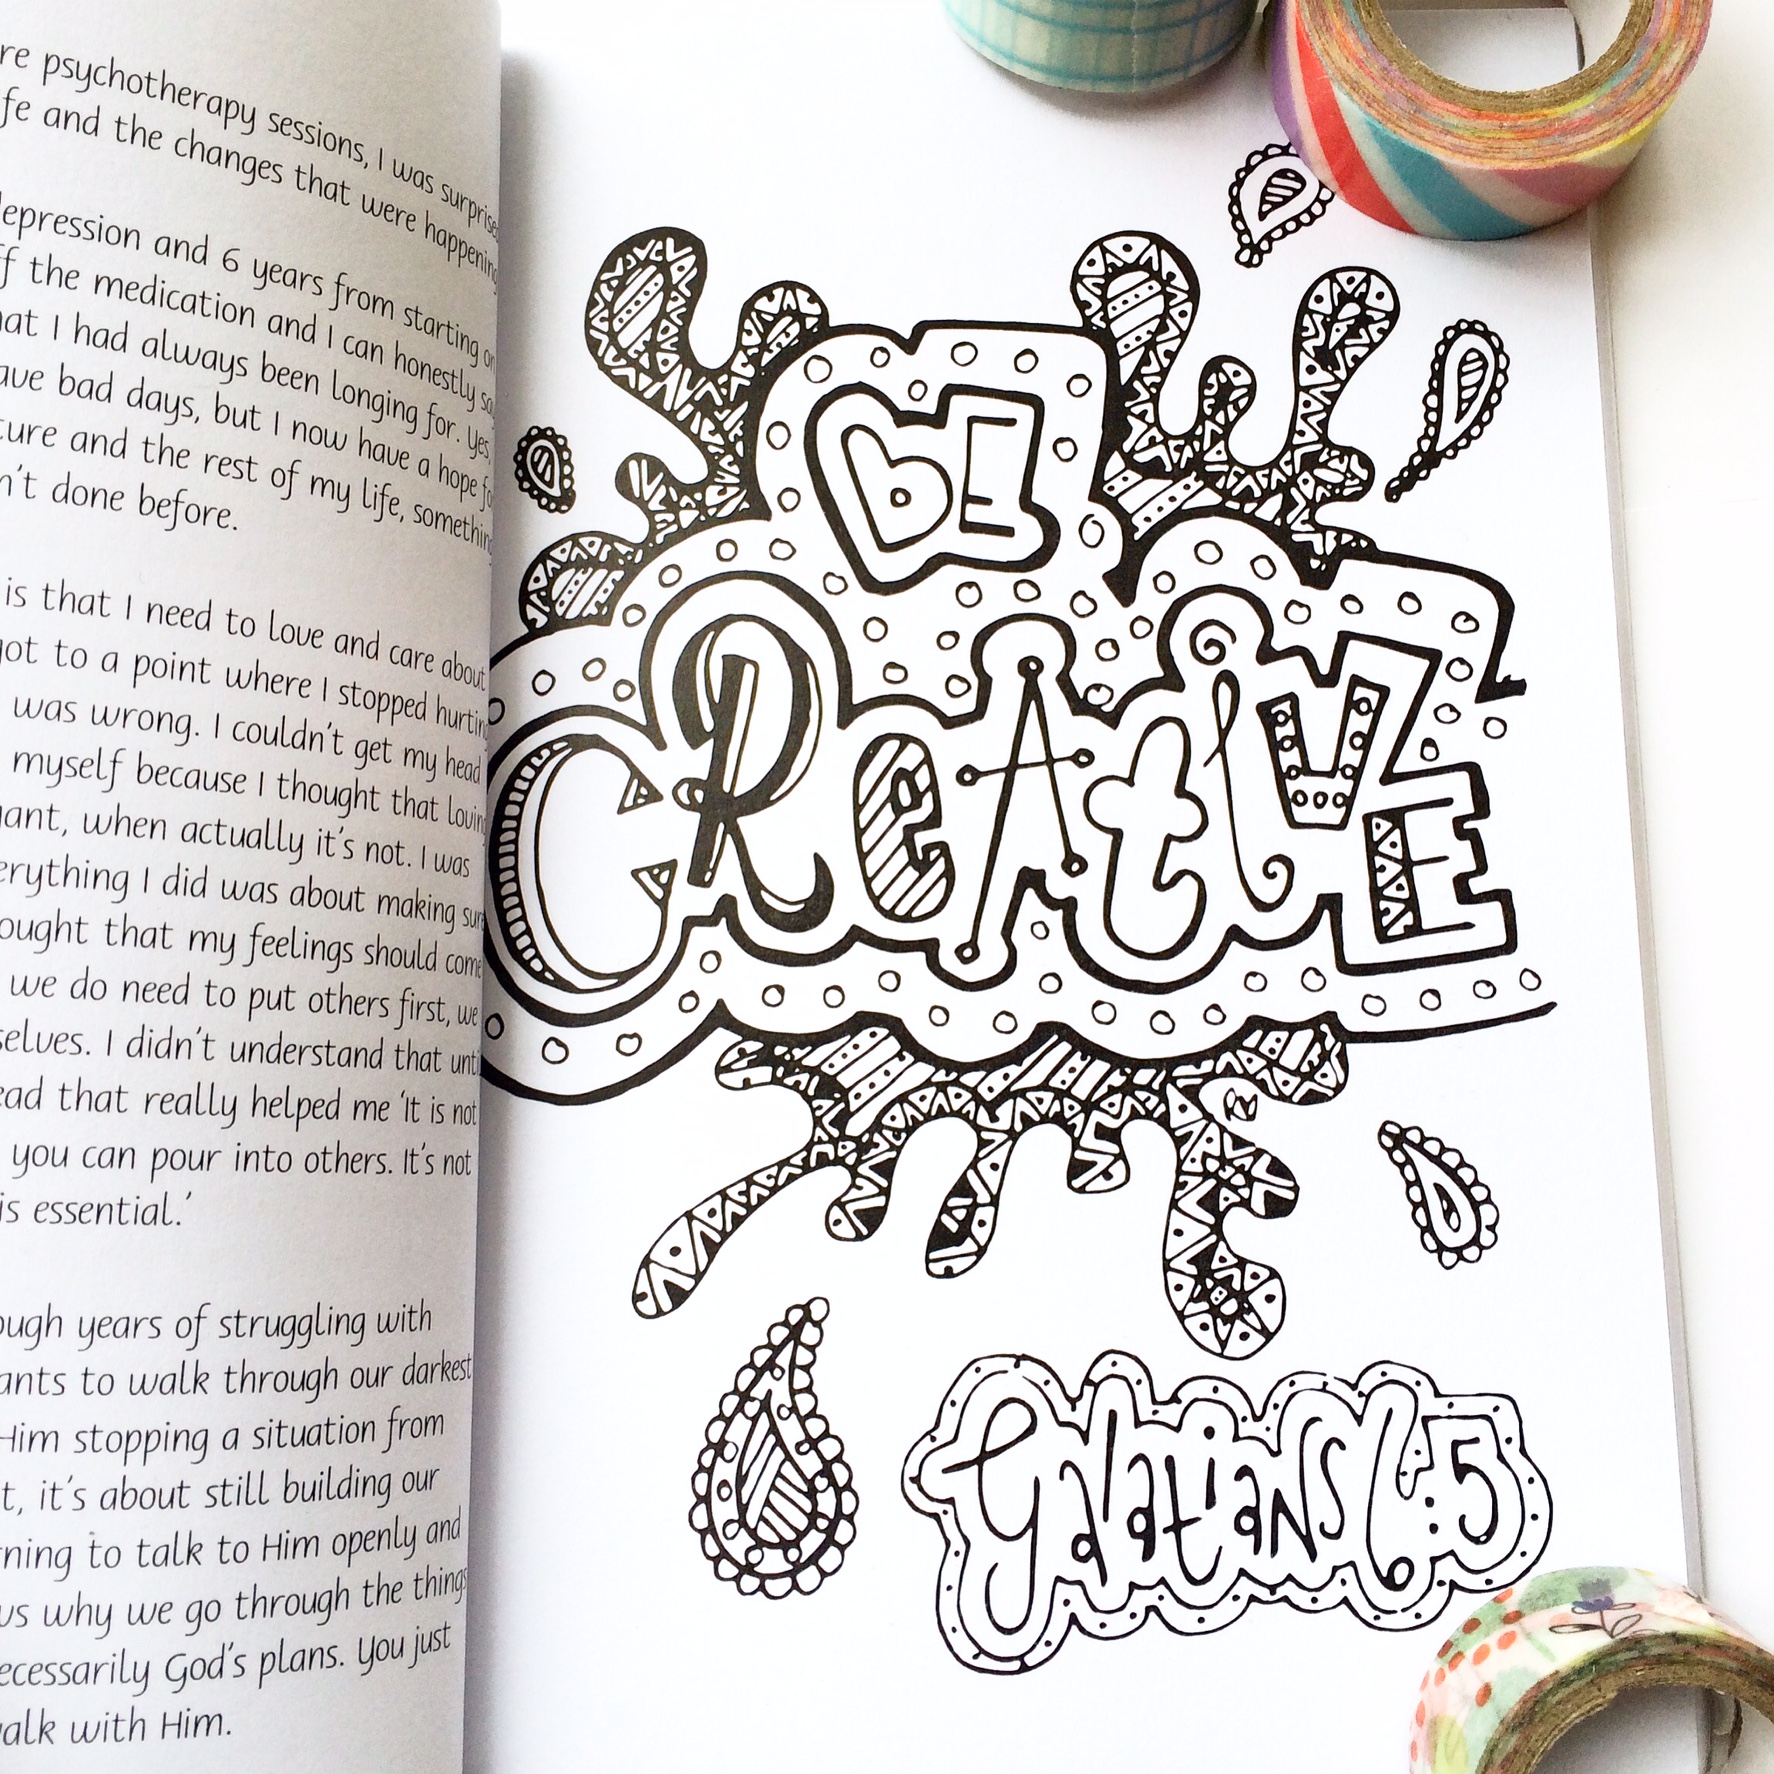 re psychotherapy sessions, I was surprise
fe and the changes that were happening
epression and 6 years from starting on
ff the medication and I can honestly say
at I had always been longing for. Yes,
ave bad days, but I now have a hope fo
ture and the rest of my life, something
n't done before.
is that I need to love and care about
got to a point where I stopped hurting
was wrong. I couldn't get my head
myself because I thought that loving
gant, when actually it's not. I was
erything I did was about making sure
ought that my feelings should come
we do need to put others first, we
selves. I didn't understand that unti
ead that really helped me 'It is not
you can pour into others. It's not
is essential.'
ough years of struggling with
ants to walk through our darkest
Him stopping a situation from
t, it's about still building our
rning to talk to Him openly and
us why we go through the things
ecessarily God's plans. You just
walk with Him.
BE
CReAtiVE
GalatiaNS 6:5